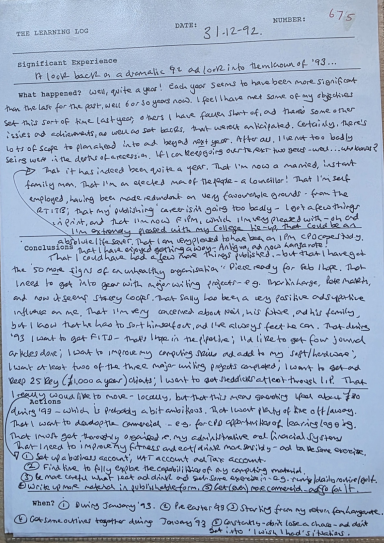 675
THE LEARNING LOG DATE: 31-12-92. NUMBER:
Significant Experience
A look back on a dramatic 92 and look into the unknown of '93...
What happened? Well, quite a year! Each year seems to have been more significant
than the last for the past, well 6 or so years now. I feel I have met some of my objectives
set this sort of time last year, others I have fallen short of, and there's some other
issues and achievements, as well as set backs, that weren't anticipated. Certainly, there's
lots of scope to plan ahead into and beyond next year. After all, I'm not too badly
being were in the depths of a recession. If I can keep going over the next two years - well... who knows?
That it has indeed been quite a year. That I'm now a married, instant
family man. That I'm an elected man of the people - a councillor! That I'm self
employed, having been made redundant on very favourable grounds - from the
RTITB; that my publishing career isn't going too badly - I got a few things
in print, and that I'm now FIPM, which I'm very pleased with - oh and
I'm extremely pleased with my College tie-up that could be an
absolute life saver. That I am very pleased to have been an IPM case study,
Conclusions
That I have enjoyed getting away - Antigua, and now Lanzarote!
That I could have had a few more things published - but that I have got
the "50 more signs of an unhealthy organisation" piece ready for Feb I hope. That I
need to get into gear with major writing projects - e.g.
and now it seems Storey Cooper. That Sally has been a very positive and supportive
influence on me. That I'm very concerned about Neil, his future, and his family,
but I know that he has to sort himself out, and I've always feel he can. That during
'93 I want to get FITD - that's I hope in the pipeline; I'd like to get four journal
articles done; I want to improve my computing skills and add to my soft/hardware;
I want at least two of the three major writing projects completed; I want to get and
keep 25 key (£1,000 a year) clients; I want to get at least through I.I.P. That
I really would like to move - locally, but that this means generating about
Actions
during '93 - which is probably a bit ambitious. That I want plenty of time off/away.
That I want to develop the commercial - e.g. for CPD opportunities of learning logging.
That I must get thoroughly organised i.e. my administrative and financial systems
That I need to improve my fitness and eat/drink more sensibly - and to be some exercise.
① Set up a business account, VAT account and Tax account.
② Find time to fully explore the capabilities of my computing material.
③ Be more careful what I eat and drink and get some exercise in - e.g.
④ Write up more material in publishable form. ⑤ Get even more commercial - and go for it.
When? ① During January '93. ② Pre easter 93 ③ Starting from my return from Lanzarote.
④ Get some outlines together during January 93 ⑤ Constantly - don't lose a chance - and don't
get into 'I wish I had' situations.